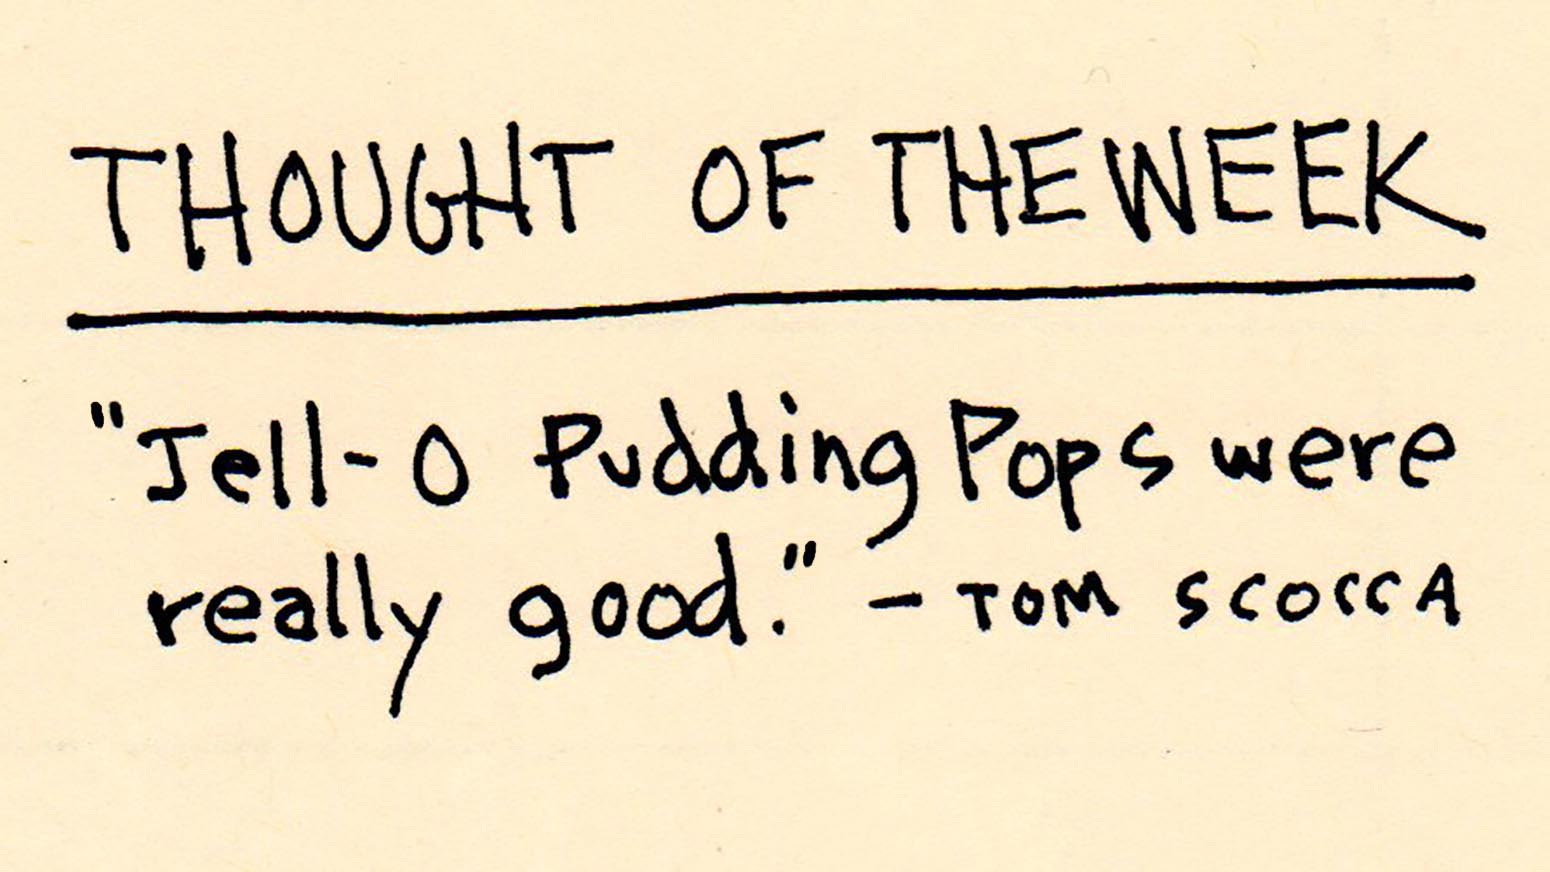 THOUGHT OF THE WEEK
"Jell-O Pudding Pops were
really good." - TOM SCOCCA